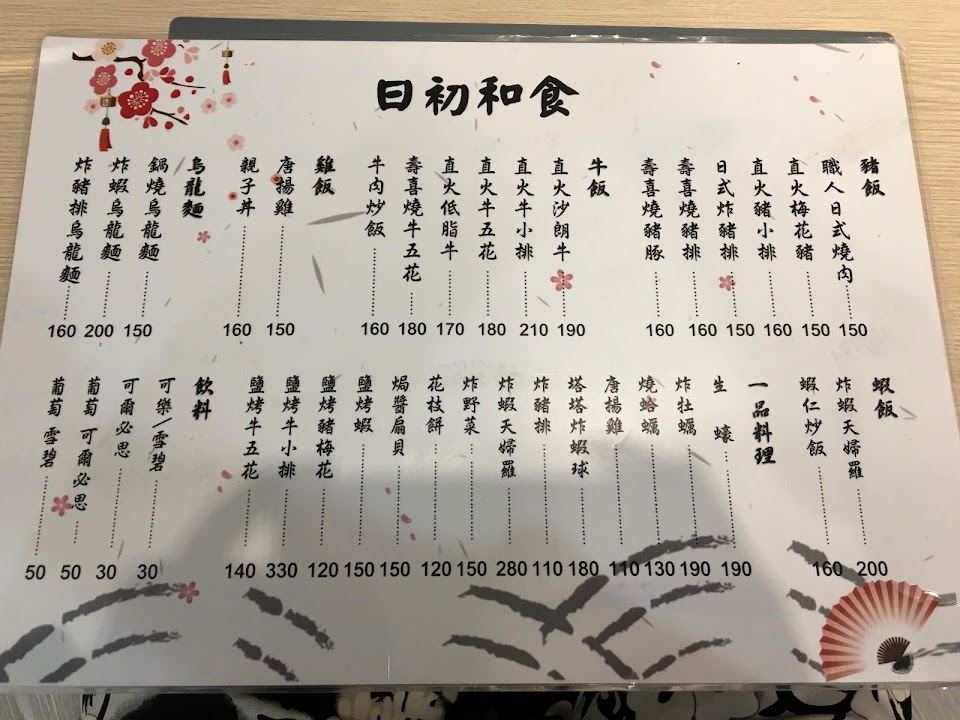 日初和食
豬飯
職人日式燒肉 150
直火梅花豬 150
直火豬小排 160
日式炸豬排 150
壽喜燒豬排 160
壽喜燒豬豚 160
牛飯
直火沙朗牛 190
直火牛小排 210
直火牛五花 180
直火低脂牛 170
壽喜燒牛五花 180
牛肉炒飯 160
雞飯
唐揚雞 150
親子丼 160
烏龍麵
鍋燒烏龍麵 150
炸蝦烏龍麵 200
炸豬排烏龍麵 160
蝦飯
炸蝦天婦羅 200
蝦仁炒飯 160
一品料理
生 蠔 190
炸牡蠣 190
燒蛤蠣 130
唐揚雞 110
塔塔炸蝦球 180
炸豬排 110
炸蝦天婦羅 280
炸野菜 150
花枝餅 120
焗醬扇貝 150
鹽烤蝦 150
鹽烤豬梅花 120
鹽烤牛小排 330
鹽烤牛五花 140
飲料
可樂/雪碧 30
可爾必思 30
葡萄 可爾必思 50
葡萄 雪碧 50